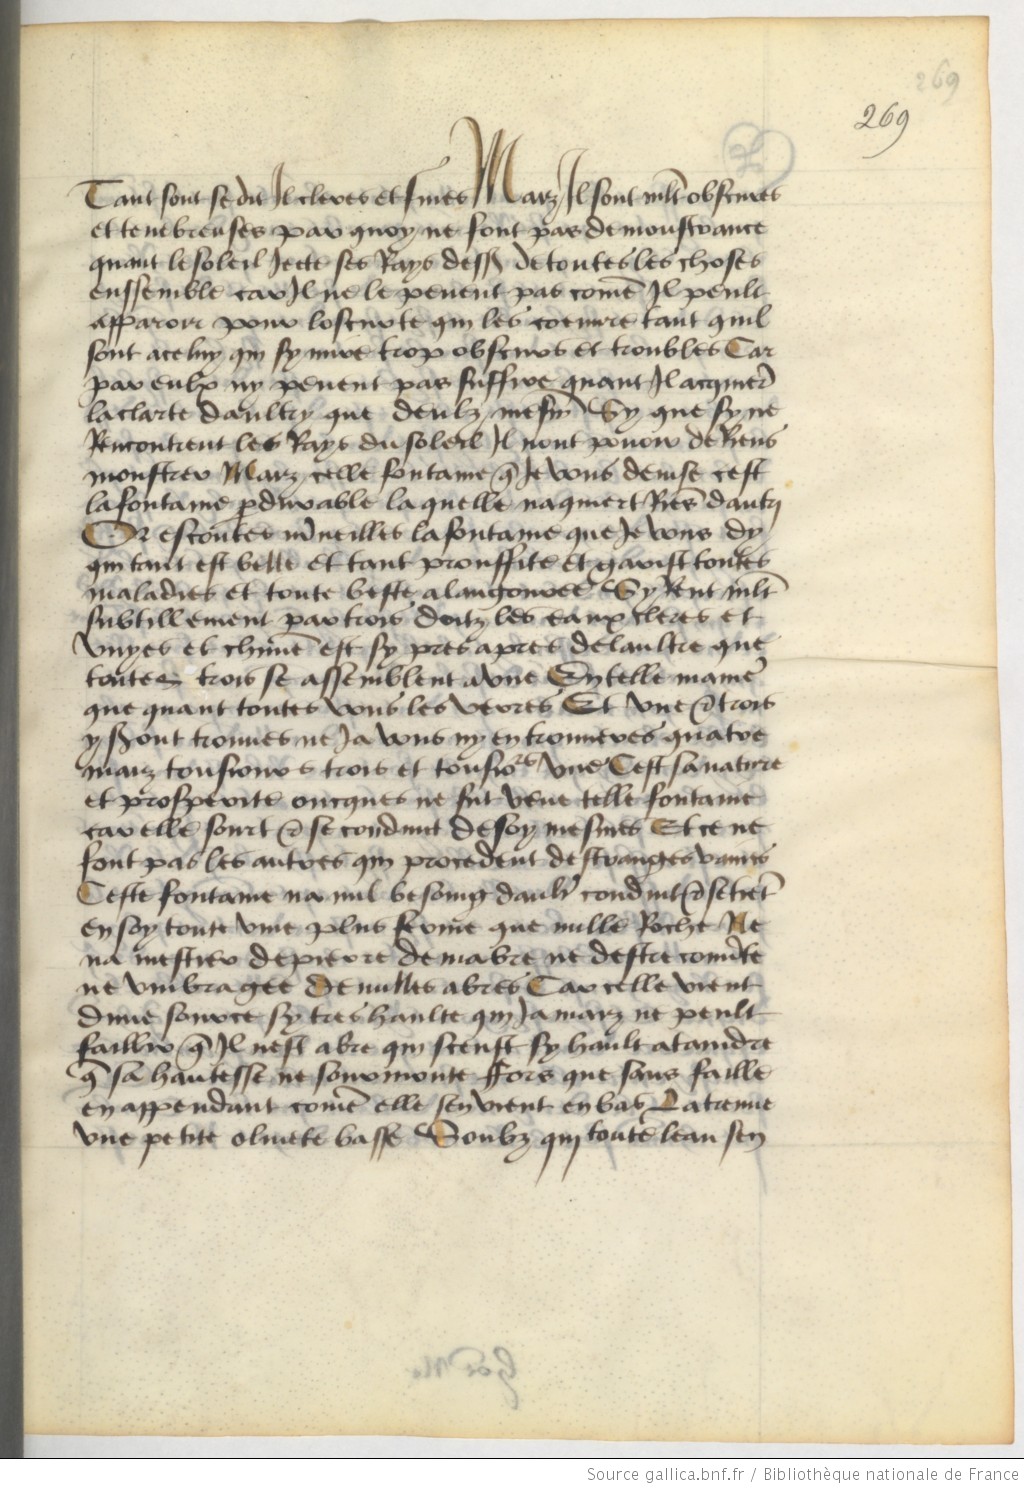 269
269
Tant sont se dit Il cleres et fines Marz Il sont mlt obscures
et tenebreuses par quoy ne font pas demonstrance
quant le soleil Jecte ses Rays dess de toutes les choses
enssemble car Il ne le peuent pas come Il peult
apparoir pour loscurte qui les coeuure tant quil
sont a celuy qui sy mire trop obscurs et troubles Car
par eulx ny peuent pas suffire quant Il acquier
la clarte daultry que deulz mesm Sy que sy ne
Rencontrent les Rays du soleil Il nont pouoir de Riens
monstrer Marz celle fontaine q Je vous deuise cest
la fontaine pdurable laquelle naquiert Ries dautry
Or escoutes mueilles la fontaine que Je vous dy
qui tant est belle et tant prouffite et garist toutes
maladies et toute beste alangouree Sy Rent mlt
subtillement par trois doitz les eaux cleres et
viuyes et chune est sy pres apres de laultre que
toutes trois se assemblent a vne En telle manie
que quant toutes vous les verres Et vne & trois
y sont trouues ne Ja vous ny en trouueres quatre
marz tousiours trois et tousiors vne Cest sa nature
et prosperite oncques ne fut veue telle fontaine
car elle sourt & se conduit de soy mesmes Et ce ne
font pas les autres qui procedent destranges vaines
Ceste fontaine na nul besoing daultr conduit & se tiet
en soy toute viue plus ferme que nulle Roche Ne
na mestier de pierre de mabre ne destre couute
ne vmbragee De nulles abres Car celle vient
dune source sy tres haulte qui Ja marz ne peult
faillir q Il nest abre qui sceust sy hault ataindre
q sa haultesse ne sourmonte Fors que sans faille
en appendant come elle sen vient en bas La treuue
vne petite oliuete basse Soubz qui toute leau sen
Source gallica.bnf.fr / Bibliothèque nationale de France